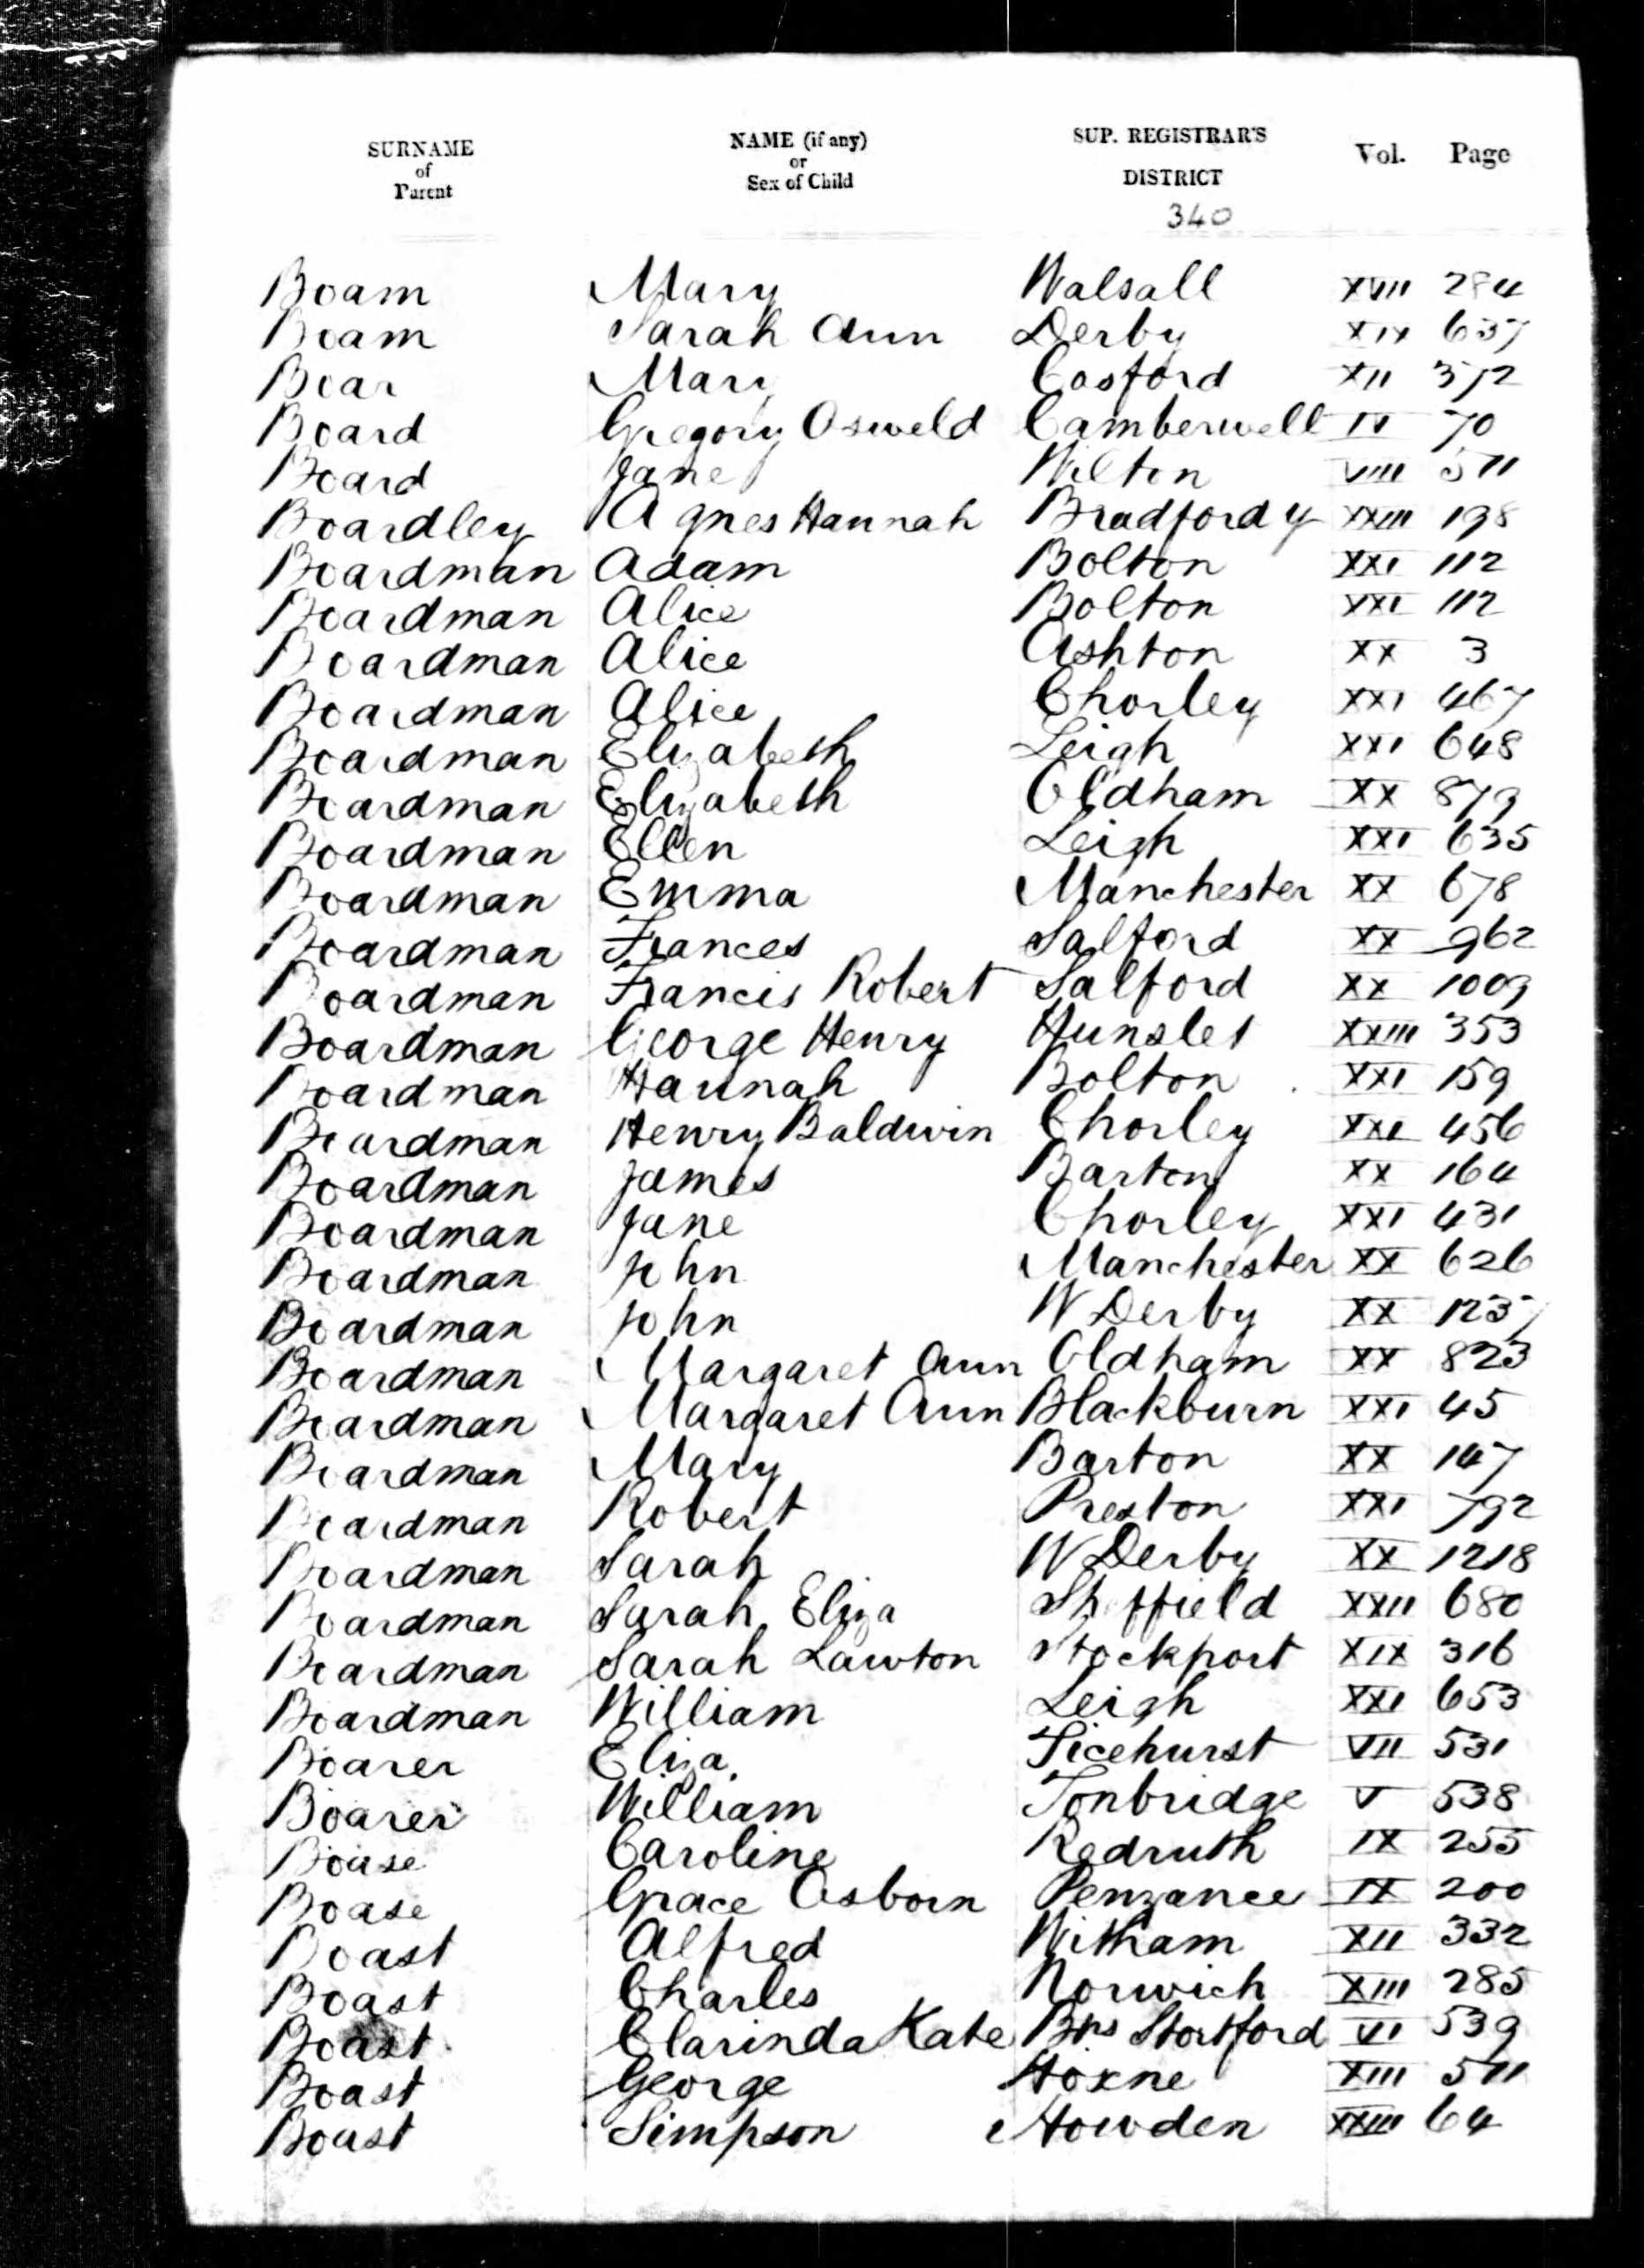 SURNAME of Parent NAME (if any) or Sex of Child SUP. REGISTRAR'S DISTRICT Vol. Page
340
Boam Mary Walsall XVII 284
Boam Sarah Ann Derby XIX 637
Boar Mary Cosford XII 372
Board Gregory Osweld Camberwell IV 70
Board Jane Wilton VIII 511
Boardley Agnes Hannah Bradford Y XXIII 198
Boardman Adam Bolton XXI 112
Boardman Alice Bolton XXI 112
Boardman Alice Ashton XX 3
Boardman Alice Chorley XXI 467
Boardman Elizabeth Leigh XXI 648
Boardman Elizabeth Oldham XX 879
Boardman Ellen Leigh XXI 635
Boardman Emma Manchester XX 678
Boardman Frances Salford XX 962
Boardman Francis Robert Salford XX 1009
Boardman George Henry Hunslet XXIII 353
Boardman Hannah Bolton XXI 159
Boardman Henry Baldwin Chorley XXI 456
Boardman James Barton XX 164
Boardman Jane Chorley XXI 431
Boardman John Manchester XX 626
Boardman John W Derby XX 1237
Boardman Margaret Ann Oldham XX 823
Boardman Margaret Ann Blackburn XXI 45
Boardman Mary Barton XX 147
Boardman Robert Preston XXI 792
Boardman Sarah W Derby XX 1218
Boardman Sarah Eliza Sheffield XXII 680
Boardman Sarah Lawton Stockport XIX 316
Boardman William Leigh XXI 653
Boarer Eliza Ticehurst VII 531
Boarer William Tonbridge V 538
Boase Caroline Redruth IX 255
Boase Grace Osborn Penzance IX 200
Boast Alfred Witham XII 332
Boast Charles Norwich XIII 285
Boast Clarinda Kate Bps Stortford VI 539
Boast George Hoxne XIII 511
Boast Simpson Howden XXIII 64